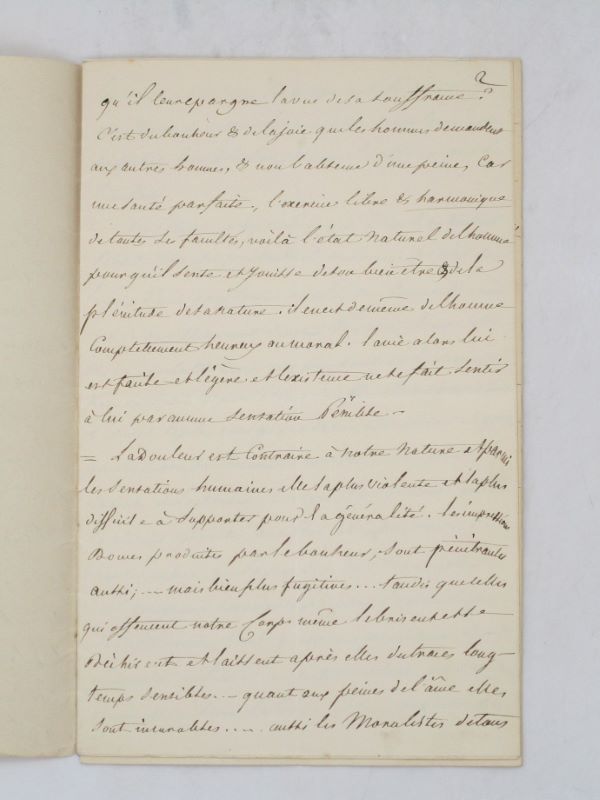 2
qu'il leur epargne la vue de sa souffrance ?
C'est du bonheur & de la joie que les hommes demandent
aux autres hommes, & non l'absence d'une peine, Car
une santé parfaite, l'exercice libre & harmonique
de toutes ses facultés, voilà l'état naturel de l'homme
pour qu'il sente et jouisse de son bien être & de la
plénitude de sa nature. il en est de même de l'homme
Complettement heureux au moral. la vie alors lui
est facile et légère et l'existence ne se fait sentir
à lui par aucune sensation Pénible —
= La Douleur est Contraire à notre nature et parmi
les sensations humaines elle est la plus violente et la plus
difficile à supporter pour la généralité. les impressions
Douces produites par le bonheur, sont pénétrantes
aussi; -- mais bien plus fugitives... tandis que celles
qui offensent notre Corps même le brisent et le
Déchirent et laissent après elles des traces long-
temps sensibles. -- quant aux peines de l'âme elles
sont incurables.... aussi les Moralistes de tous